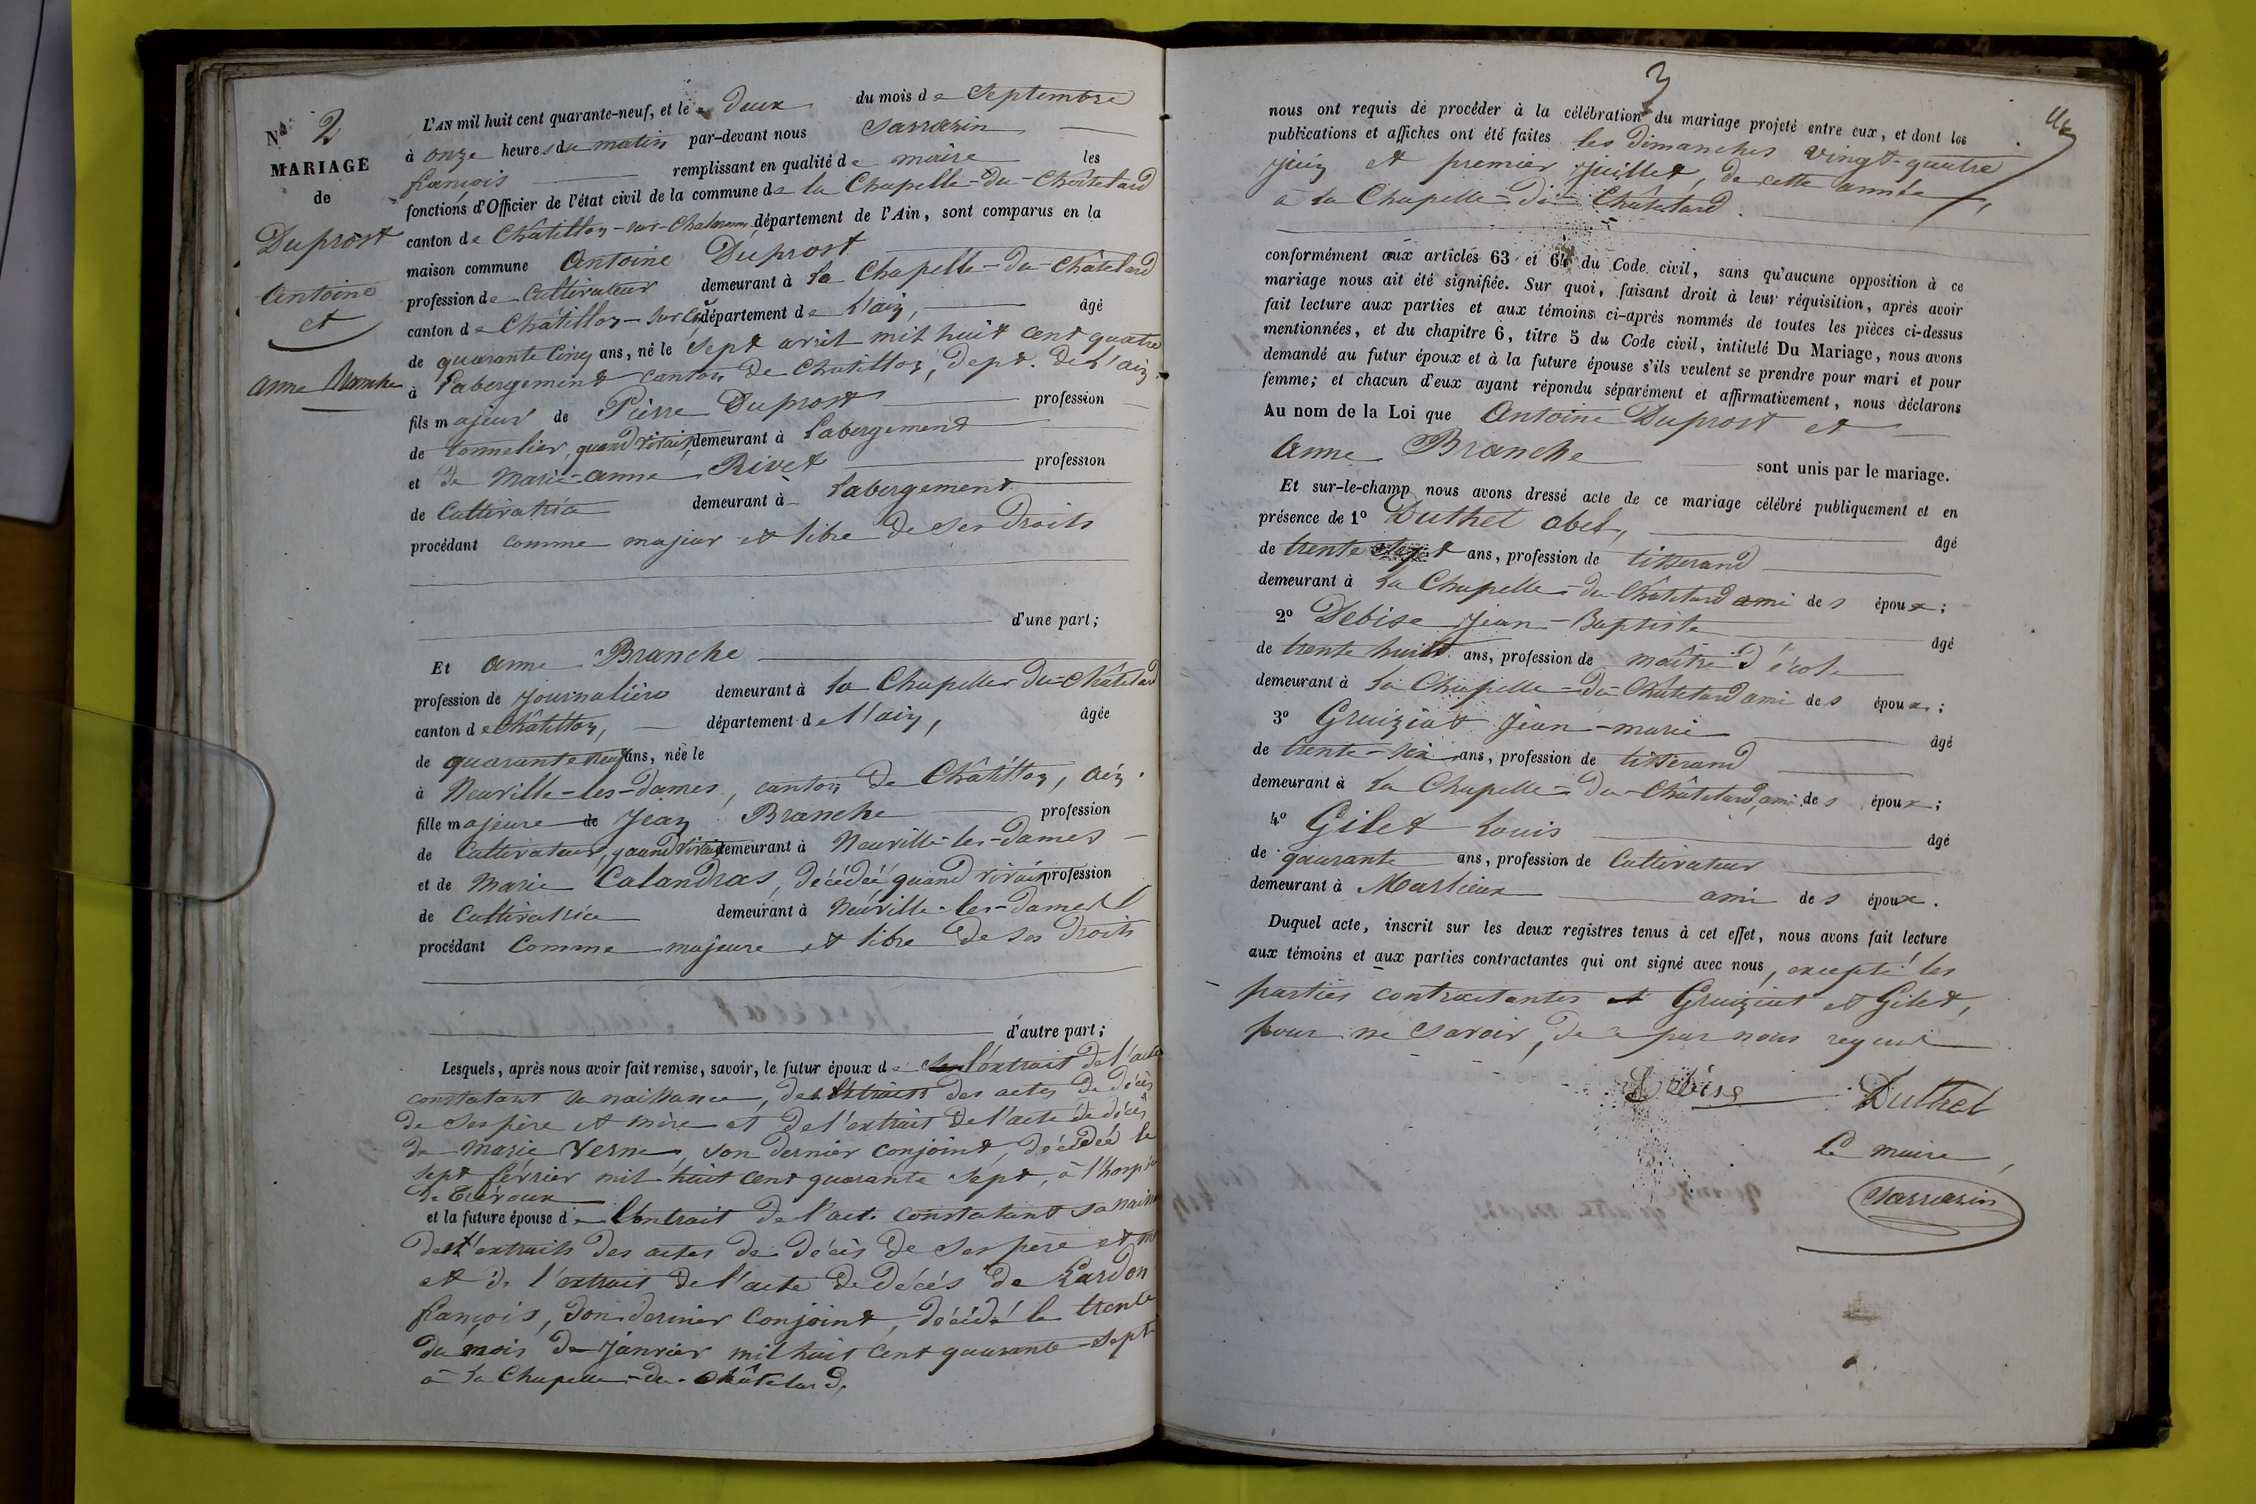 N° 2
MARIAGE
de
Duprost
Antoine
et
Anne Branche
L'AN mil huit cent quarante-neuf, et le deux du mois de Septembre
à onze heures du matin par-devant nous Sarrazin
françois remplissant en qualité de maire les
fonctions d'Officier de l'état civil de la commune de la Chapelle-du-Châtelard
canton de Châtillon-sur-Chalaronne département de l'Ain, sont comparus en la
maison commune Antoine Duprost
profession de Cultivateur demeurant à la Chapelle-du-Châtelard
canton de Châtillon-sur Ch département de l'ain, âgé
de quarante cinq ans, né le sept avril mil huit cent quatre
à l'abergement canton de Chatillon, dept. de l'ain
fils majeur de Pierre Duprost profession
de tonnelier, quand vivait, demeurant à l'abergement
et de Marie-anne Rivet profession
de Cultivatrice demeurant à l'abergement
procédant comme majeur et libre de ses droits
d'une part;
Et anne Branche
profession de journalière demeurant à la Chapelle du-Châtelard
canton de Châtillon, département de l'ain, âgée
de quarante neuf ans, née le
à Neuville-les-Dames, canton de Châtillon, ain.
fille majeure de Jean Branche profession
de Cultivateur, quand vivait demeurant à Neuville-les-Dames
et de Marie Calandras, décédée quand vivait profession
de Cultivatrice demeurant à Neuville-les-Dames
procédant comme majeure et libre de ses droits
d'autre part;
Lesquels, après nous avoir fait remise, savoir, le futur époux de l'extrait de l'acte
constatant sa naissance, des extraits des actes de décès
de ses père et mère et de l'extrait de l'acte de décès
de marie Verne, son dernier conjoint, décédée le
sept février mil huit cent quarante sept, à l'hospice
de Trévoux
et la future épouse de l'extrait de l'acte constatant sa naiss
des extraits des actes de décès de ses père et m
et de l'extrait de l'acte de décès de Lardon
françois, son dernier conjoint, décédé le trente
du mois de Janvier mil huit cent quarante-sept
à la Chapelle-du-Châtelard.
3
nous ont requis de procéder à la célébration du mariage projeté entre eux, et dont les
publications et affiches ont été faites les dimanches vingt-quatre
juin et premier juillet, de cette année,
à la Chapelle-du-Châtelard.
conformément aux articles 63 et 64 du Code civil, sans qu'aucune opposition à ce
mariage nous ait été signifiée. Sur quoi, faisant droit à leur réquisition, après avoir
fait lecture aux parties et aux témoins ci-après nommés de toutes les pièces ci-dessus
mentionnées, et du chapitre 6, titre 5 du Code civil, intitulé Du Mariage, nous avons
demandé au futur époux et à la future épouse s'ils veulent se prendre pour mari et pour
femme; et chacun d'eux ayant répondu séparément et affirmativement, nous déclarons
Au nom de la Loi que Antoine Duprost et
Anne Branche sont unis par le mariage.
Et sur-le-champ nous avons dressé acte de ce mariage célébré publiquement et en
présence de 1° Duthel abel, âgé
de trente sept ans, profession de tisserand
demeurant à la Chapelle-du-Châtelard ami des époux;
2° Debise Jean-Baptiste âgé
de trente huit ans, profession de maître d'école
demeurant à la Chapelle-du-Châtelard ami des époux;
3° Gruiziat Jean-marie âgé
de trente-six ans, profession de tisserand
demeurant à la Chapelle-du-Châtelard, ami des époux;
4° Gilet Louis âgé
de quarante ans, profession de Cultivateur
demeurant à Marlieux ami des époux.
Duquel acte, inscrit sur les deux registres tenus à cet effet, nous avons fait lecture
aux témoins et aux parties contractantes qui ont signé avec nous, excepté les
parties contractantes et Gruiziat et Gilet,
pour ne savoir, de ce par nous requis
Debise Duthel
Le maire,
Sarrazin